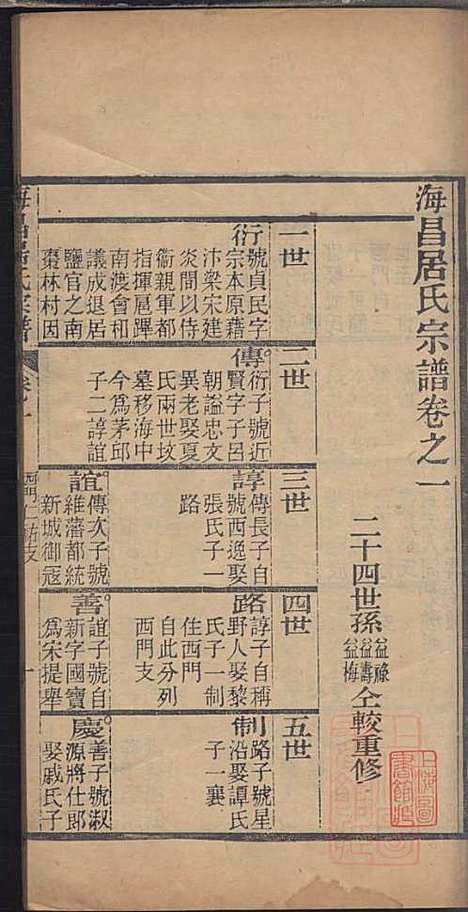 海昌居氏宗譜卷之一
二十四世孫益祿益壽益梅仝較重修
一世
衍號貞民字
宗本原藉
汴梁宋建
炎間以侍
衞親軍都
指揮扈蹕
南渡會和
議成退居
鹽官之南
棗林村因
二世
傳衍子號近
賢字子呂
朝謚忠文
異老娶夏
氏兩世坟
墓移海中
今為茅邱
子二諄誼
三世
諄傳長子自
號西逸娶
張氏子一
路
誼傳次子號
維藩都統
新城御寇
四世
路諄子自稱
野人娶黎
氏子一制
住西門
自此分列
西門支
善誼子號自
新字國寶
為宋提舉
五世
制路子號星
沿娶譚氏
子一襄
慶善子號淑
源將仕郎
娶戚氏子
海昌居氏宗譜
卷一
一
上海圖書館藏